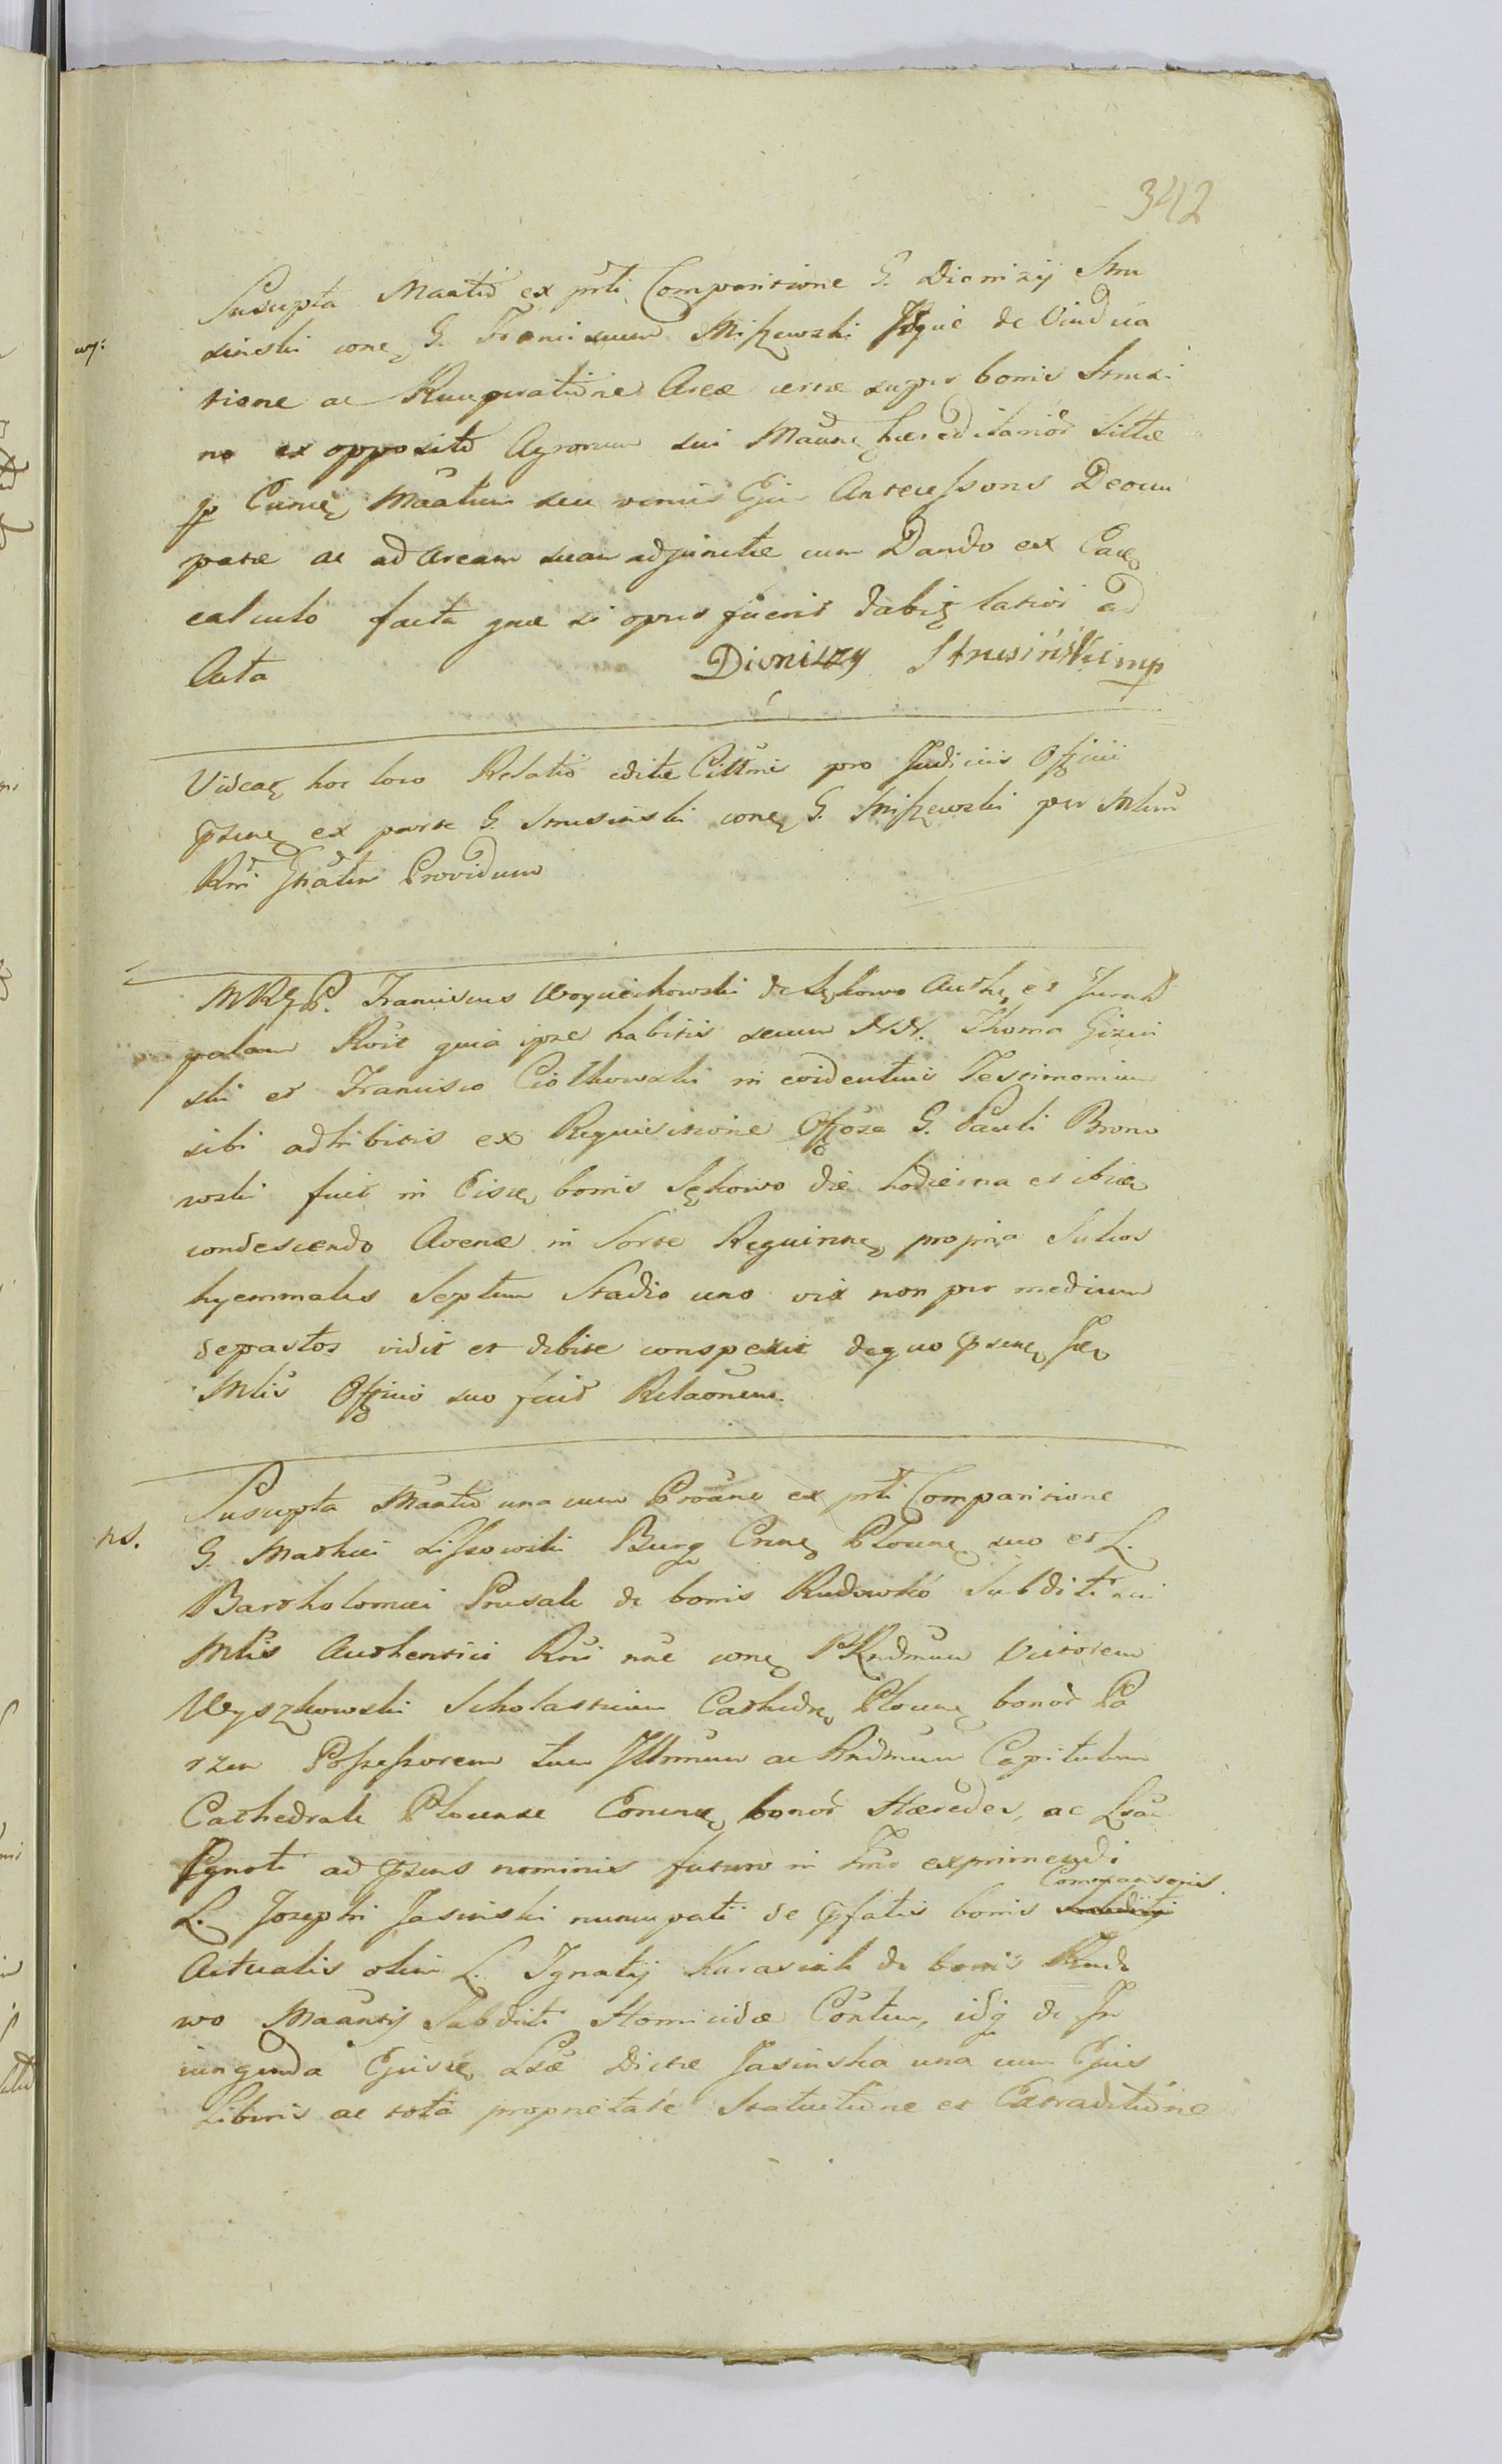 342
Suscepta Maatio ex prti Comparitione G. Dionizij Stru
sinski conq G. Franciscum Miszewski Idque de Vindica
tione ac Recuperatione Areae certae super bonis Strusi
no ex opposito Agrorum sui Maatne haereditarior sittae
p Eunde Maatum seu verius Ejus Antecessores Deoccu
patae ac ad Aream suam adjunctae cum Dando ex Ea
calculo facta quae si opus fuerit dabiq latior ad
Acta Dionizzy Strusiński mp
wy:
Videaq hoc loco Relatio editae Cittnis pro Judiciis Officii
pntis ex parte G. Strusinski conq G. Miszewski per Mlem
Rni Gnalem Providum
MRG P. Franciscus Woyciechowski de Sękowo Authe et Jurad
palam Rcit quia ipse habitis secum NN. Thoma Gizin
ski et Francisco Ciołkowski in evidentius Testimonium
sibi adhibitis ex Requisitione Offosa G. Pauli Brono
wski fuit in Eisde bonis Sękowo die hodierna et ibide
condescendo Avenae in Sorte Requirentis propria Sulcos
hyemmales Septem Stadio uno vix non per medium
depastos vidit et debite conspexit de quo psens
Mlis Officio suo fecit Relaonem.
Suscepta Maatio una cum Proane ex prti Comparitione
ns.
G. Mathei Lissowski Burg Crens Plocens suo et L.
Bartholomaei Prusak de bonis Rudowko Subditi sui
Mlis Authentici Rni nne conq PRndmum Victorem
Wyszkowski Scholasticum Cathedr Plocens bonor Pa
rzen Possessorem tum Illmum ac Rndmum Capitulum
Cathedrale Plocense Eorunde bonor Haeredes, ac Lsam
Ignoti ad psens nominis futuro in Tmno exprimendi
L. Josephi Jasinski nuncupati de pfatis bonis Comparsonis
Actualis olim L. Ignatij Kurasiak de bonis Rudo
wo Maantis Subditi Homicidae Contem, idq de In
iungenda Ejusde Lsae dictae Jasinska una cum Ejus
Liberis ac tota proprietate Statuitione et Extraditione